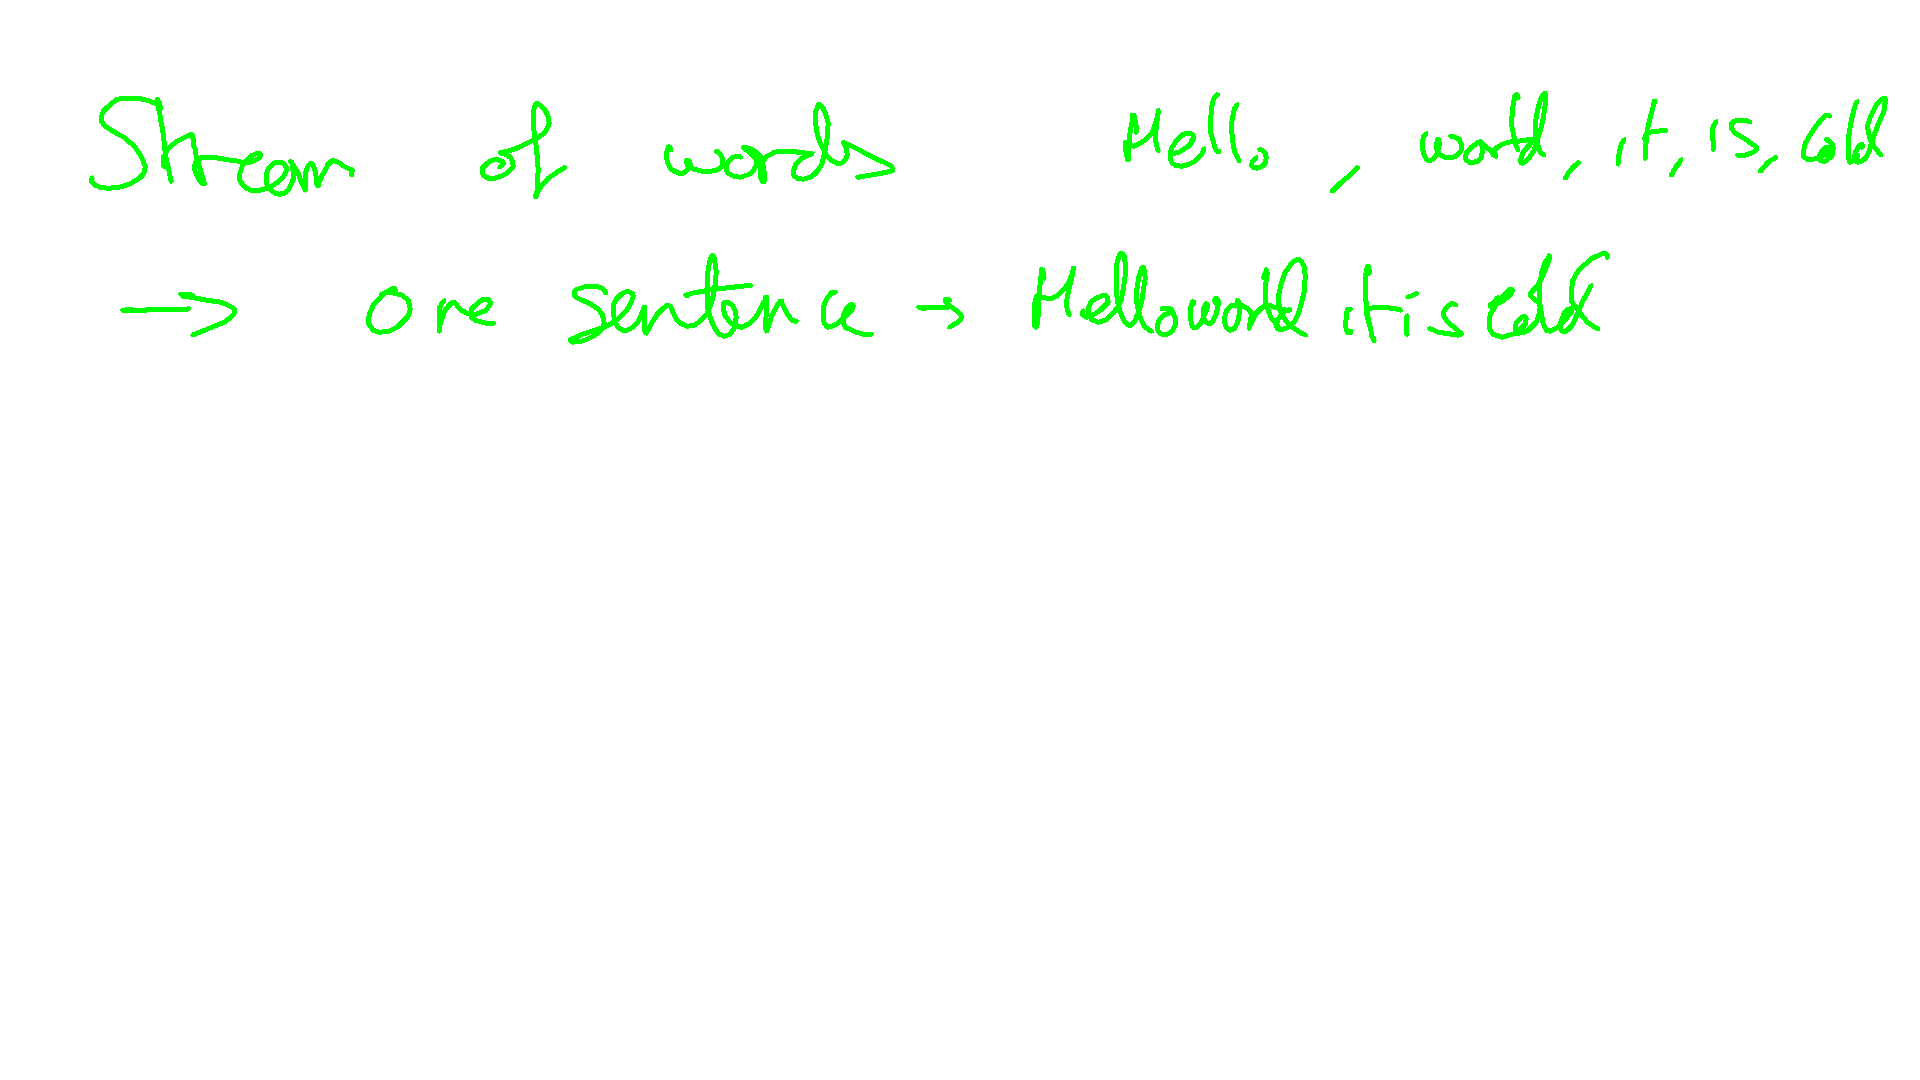 Stream of words Hello, world, it, is, cold
→ one sentence → Hello world it is cold